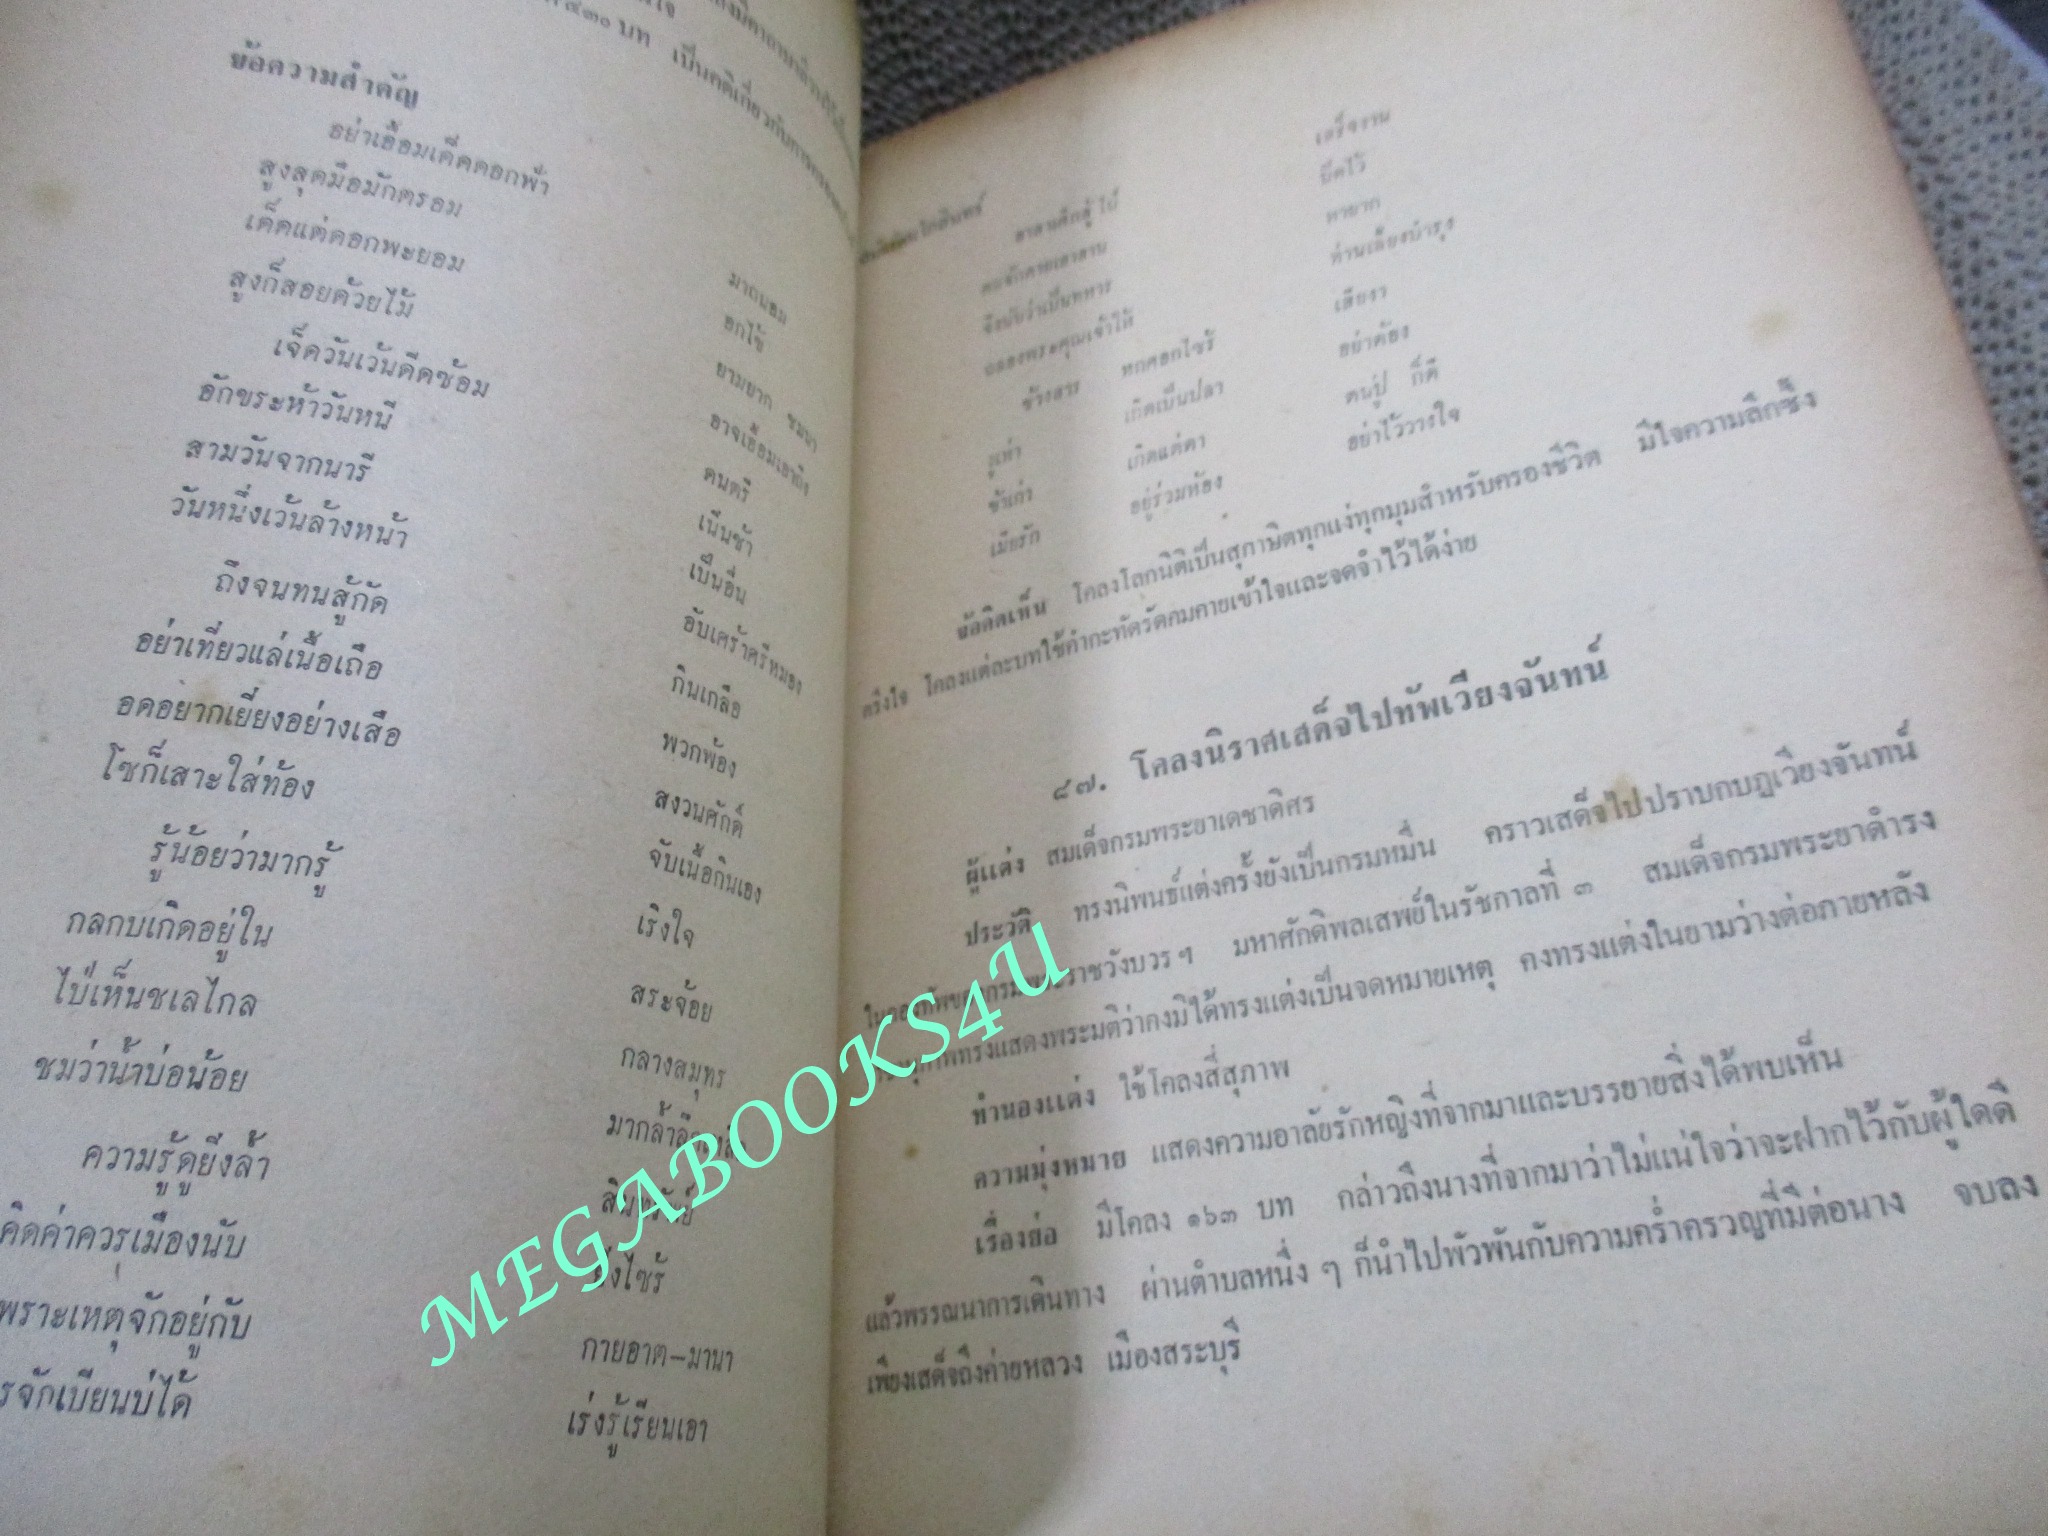 ๕๓๐ บท เป็นคติเกี่ยวกับการครอง
ข้อความสำคัญ
อย่าเอื้อมเด็ดดอกฟ้า มาถนอม
สูงสุดมือมักตรอม อกไข้
เด็ดแต่ดอกพะยอม ยามยาก ชมนา
สูงก็สอยด้วยไม้ อาจเอื้อมเอาถึง
เจ็ดวันเว้นดีดซ้อม ดนตรี
อักขระห้าวันหนี เนิ่นช้า
สามวันจากนารี เป็นอื่น
วันหนึ่งเว้นล้างหน้า อับเศร้าศรีหมอง
ถึงจนทนสู้กัด กินเกลือ
อย่าเที่ยวแล่เนื้อเถือ พวกพ้อง
อดอยากเยี่ยงอย่างเสือ สงวนศักดิ์
โซก็เสาะใส่ท้อง จับเนื้อกินเอง
รู้น้อยว่ามากรู้ เริงใจ
กลกบเกิดอยู่ใน สระจ้อย
ไป่เห็นชเลไกล กลางสมุทร
ชมว่าน้ำบ่อน้อย มากล้ำลึกเหลือ
ความรู้ดูยิ่งล้ำ สินทรัพย์
คิดค่าควรเมืองนับ ยิ่งไซร้
พราะเหตุจักอยู่กับ กายอาต–มานา
รจักเบียนบ่ได้ เร่งรู้เรียนเอา
อาสาศึกสู้ เสร็จงาน
ยึดไว้
จึงนับว่าเป็นทหาร หายาก
ฉลองพระคุณเจ้าให้ ท่านเลี้ยงบำรุง
ช้างสาร หกศอกไซร้ เสียงา
งูเห่า เกิดเป็นปลา อย่าต้อง
ข้าเก่า เกิดแต่ตา ตนปู่ ก็ดี
เมียรัก อยู่ร่วมห้อง อย่าไว้วางใจ
ข้อคิดเห็น โคลงโลกนิติเป็นสุภาษิตทุกแง่ทุกมุมสำหรับครองชีวิต มีใจความลึกซึ้ง
ตรึงใจ โคลงแต่ละบทใช้คำกะทัดรัดคมคายเข้าใจและจดจำไว้ได้ง่าย
๘๗. โคลงนิราศเสด็จไปทัพเวียงจันทน์
ผู้แต่ง สมเด็จกรมพระยาเดชาดิศร
ประวัติ ทรงนิพนธ์แต่งครั้งยังเป็นกรมหมื่น คราวเสด็จไปปราบกบฏเวียงจันทน์
ในกองทัพของกรมพระราชวังบวรฯ มหาศักดิพลเสพย์ในรัชกาลที่ ๓ สมเด็จกรมพระยาดำรง
ทรงแสดงพระมติว่าคงมิได้ทรงแต่งเป็นจดหมายเหตุ คงทรงแต่งในยามว่างต่อภายหลัง
ทำนองแต่ง ใช้โคลงสี่สุภาพ
ความมุ่งหมาย แสดงความอาลัยรักหญิงที่จากมาและบรรยายสิ่งได้พบเห็น
เรื่องย่อ มีโคลง ๑๖๓ บท กล่าวถึงนางที่จากมาว่าไม่แน่ใจว่าจะฝากไว้กับผู้ใดดี
แล้วพรรณนาการเดินทาง ผ่านตำบลหนึ่ง ๆ ก็นำไปพัวพันกับความคร่ำครวญที่มีต่อนาง จบลง
เพียงเสด็จถึงค่ายหลวง เมืองสระบุรี
MEGABOOKS4U